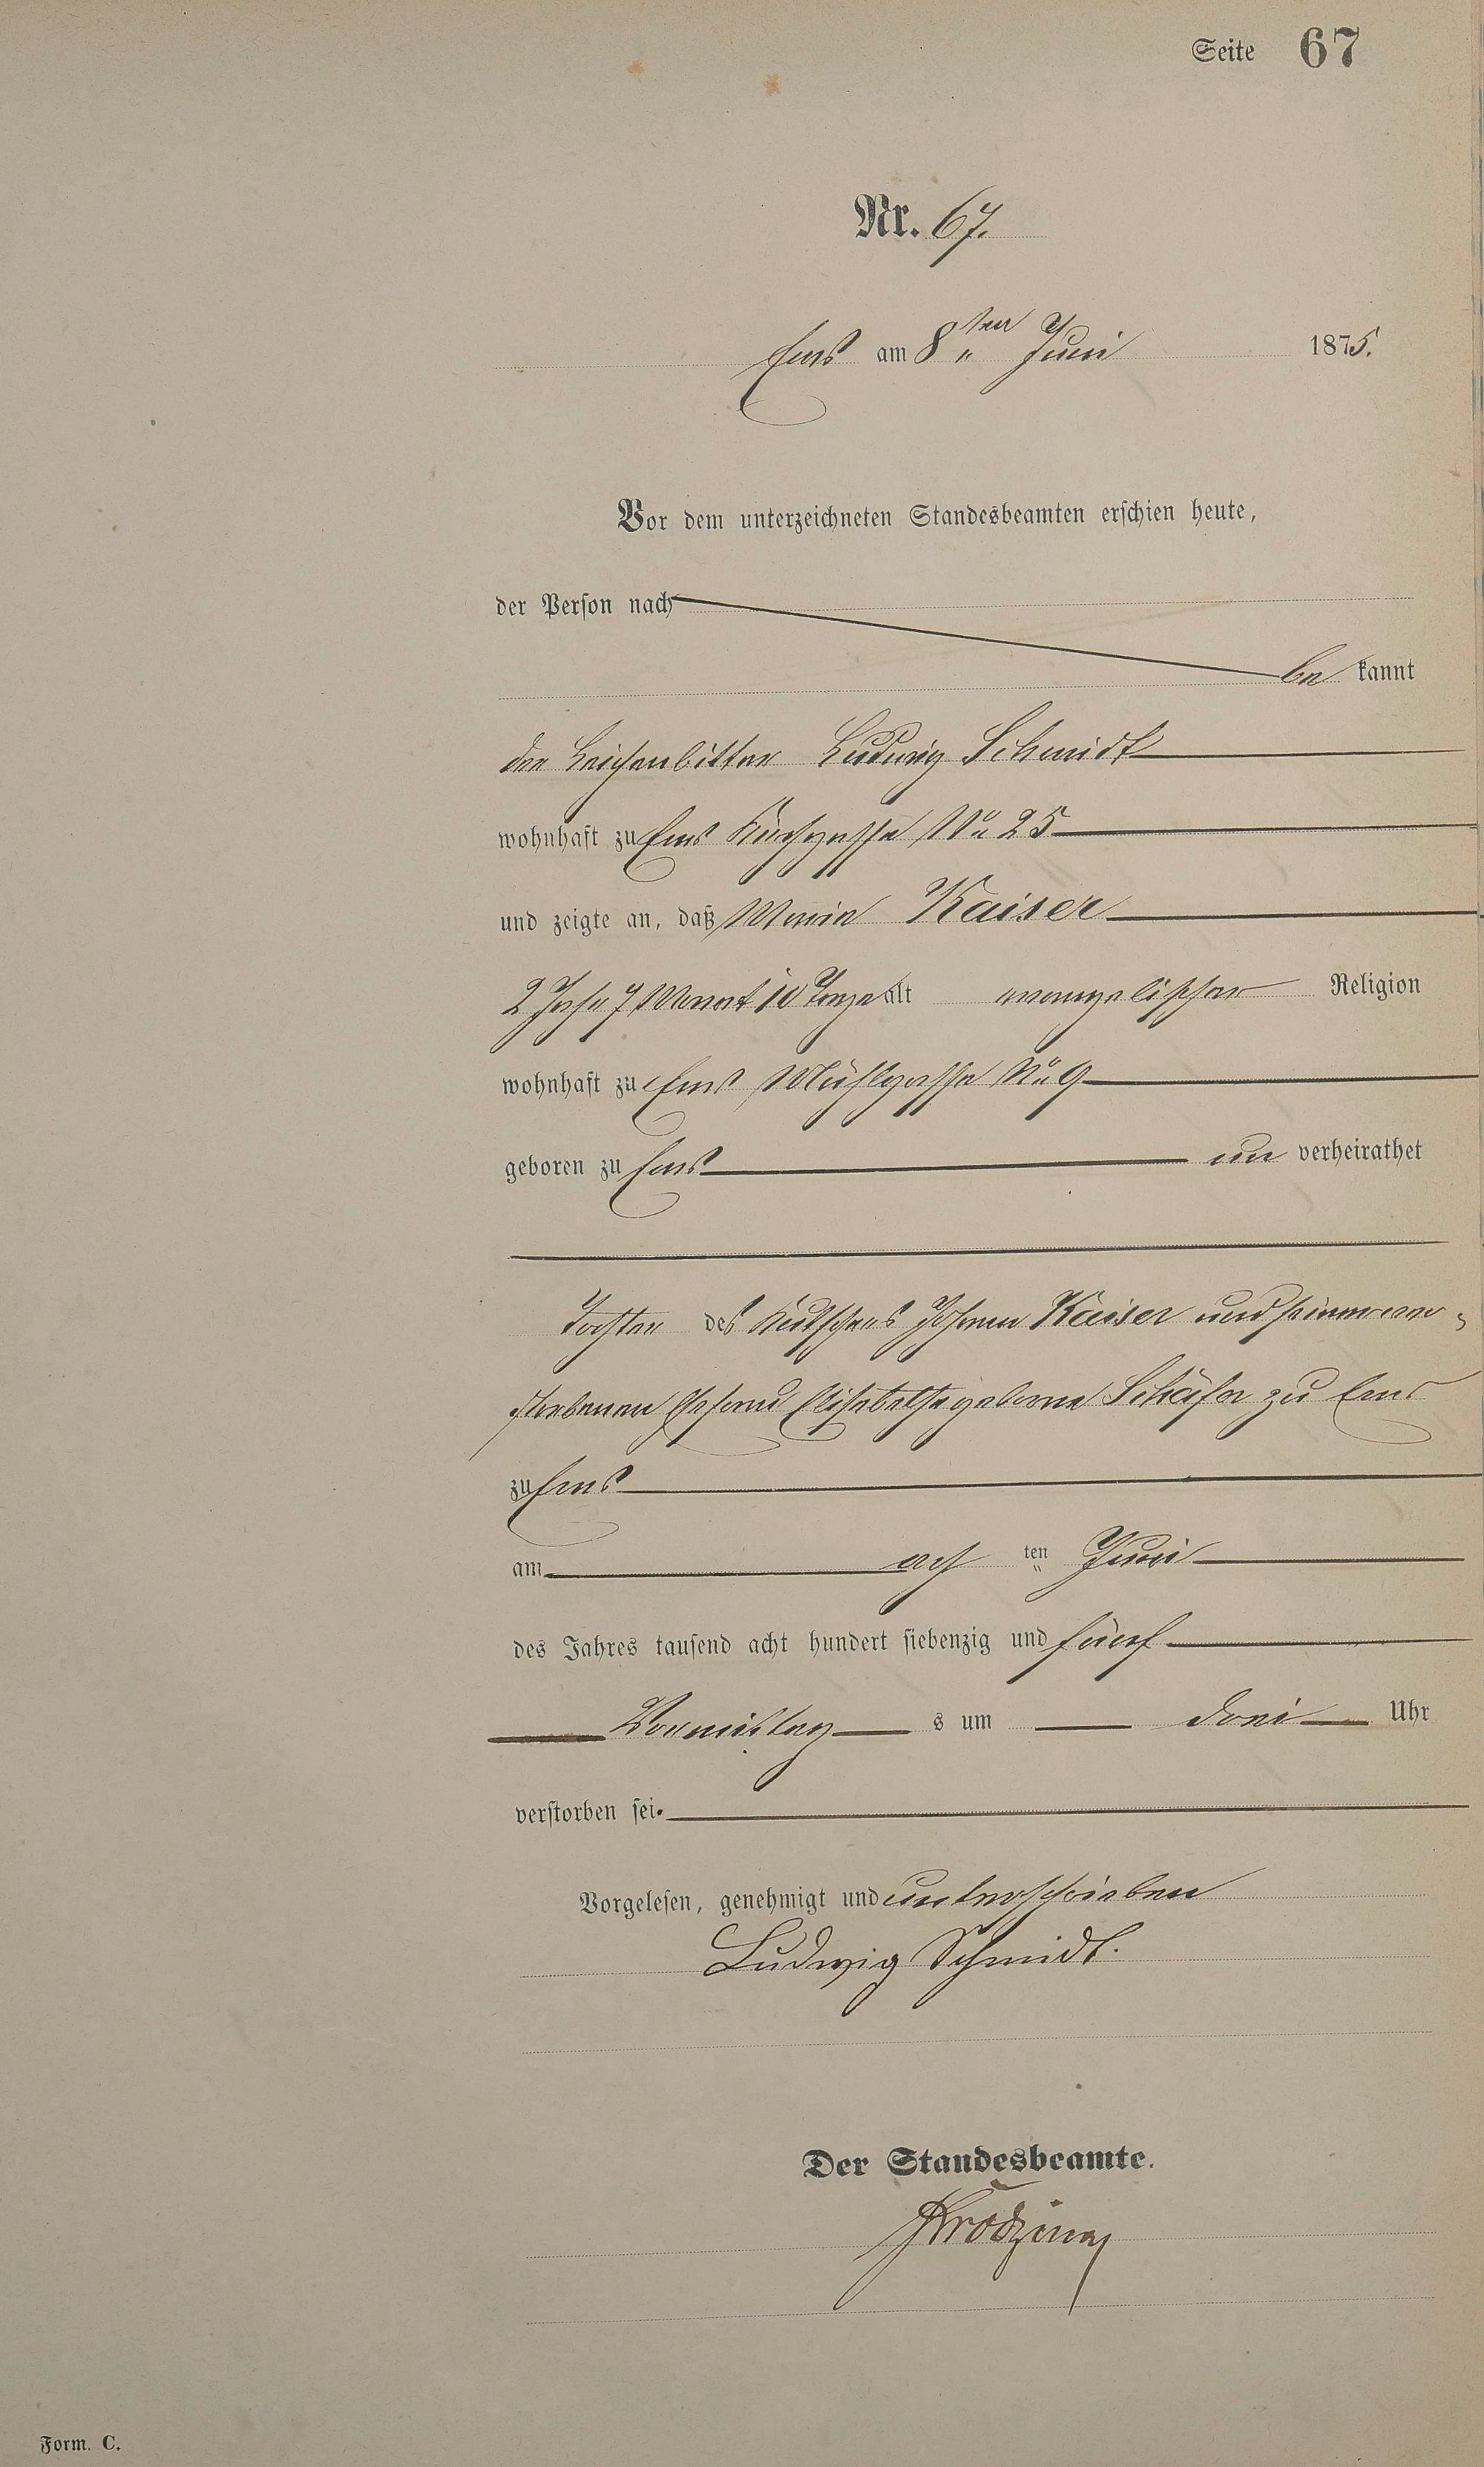 Seite 67
Nr. 67.
Ems am 8ten Juni 1875.
Vor dem unterzeichneten Standesbeamten erschien heute,
der Person nach
be kannt
der Leichenbitter Ludwig Schmidt
wohnhaft zu Ems Kirchgasse No 25
und zeigte an, daß Maria Kaiser
2 Jahr 7 Monat 10 Tage alt evangelischer Religion
wohnhaft zu Ems Mühlgasse No 9
geboren zu Ems un verheirathet
Tochter des Kutschers Johann Kaiser und seiner ver-
storbenen Ehefrau Elisabetha geborne Schäfer zu Ems
zu Ems
am acht ten Juni
des Jahres tausend acht hundert siebenzig und fünf
Vormittag s um drei Uhr
verstorben sei.
Vorgelesen, genehmigt und unterschrieben
Ludwig Schmidt.
Der Standesbeamte.
Form. C.